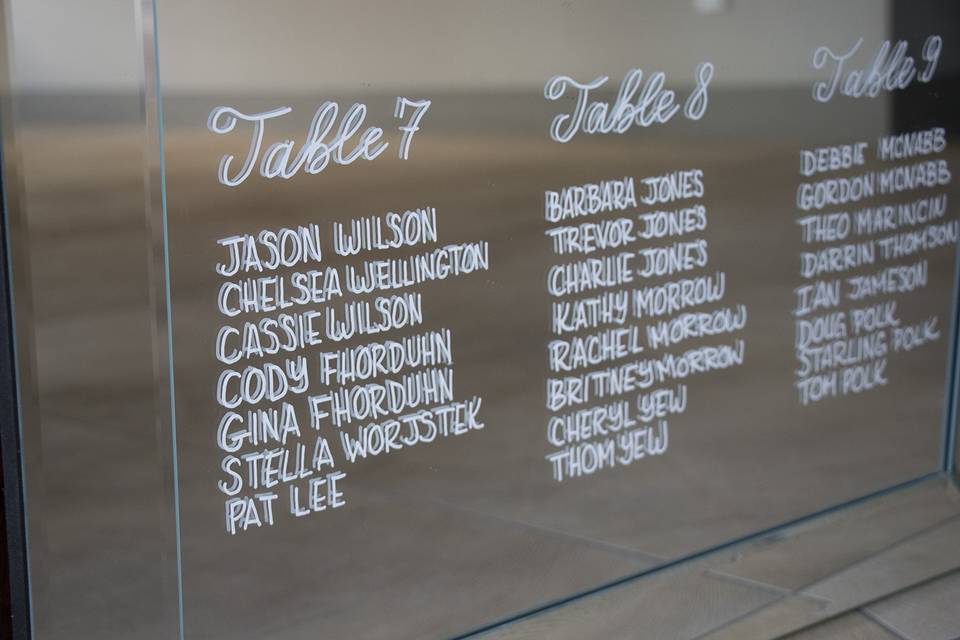 Table 7
JASON WILSON
CHELSEA WELLINGTON
CASSIE WILSON
CODY FHORDUHN
GINA FHORDUHN
STELLA WORJSTEK
PAT LEE
Table 8
BARBARA JONES
TREVOR JONES
CHARLIE JONES
KATHY MORROW
RACHEL MORROW
BRITNEY MORROW
CHERYL YEW
THOM YEW
Table 9
DEBBIE MCNABB
GORDON MCNABB
THEO MARINCIN
DARRIN THOMSON
IAN JAMESON
DOUG POLK
STARLING POLK
TOM POLK